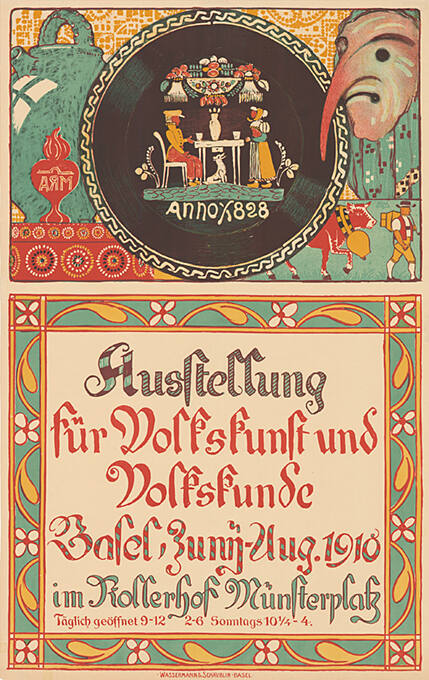 ARM
Anno 1828
Ausstellung
für Volkskunst und
Volkskunde
Basel, Junÿ-Aug. 1910
im Rollerhof Münsterplatz
Täglich geöffnet 9-12 2-6 Sonntags 10¼-4.
WASSERMANN & SCHÄUBLIN-BASEL